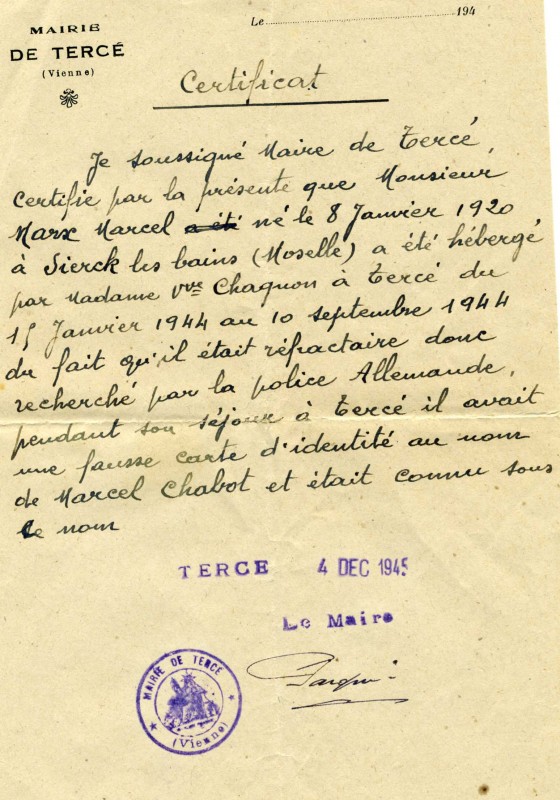 Le 194
MAIRIE
DE TERCÉ
(Vienne)
Certificat
Je soussigné Maire de Tercé,
Certifie par la présente que Monsieur
Marx Marcel a été né le 8 Janvier 1920
à Sierck les bains (Moselle) a été hébergé
par Madame Vve Chagnon à Tercé du
15 Janvier 1944 au 10 septembre 1944
du fait qu'il était réfractaire donc
recherché par la police Allemande,
pendant son séjour à Tercé il avait
une fausse carte d'identité au nom
de Marcel Chabot et était connu sous
le nom
TERCE 4 DEC 1945
Le Maire
MAIRIE DE TERCE
(Vienne)